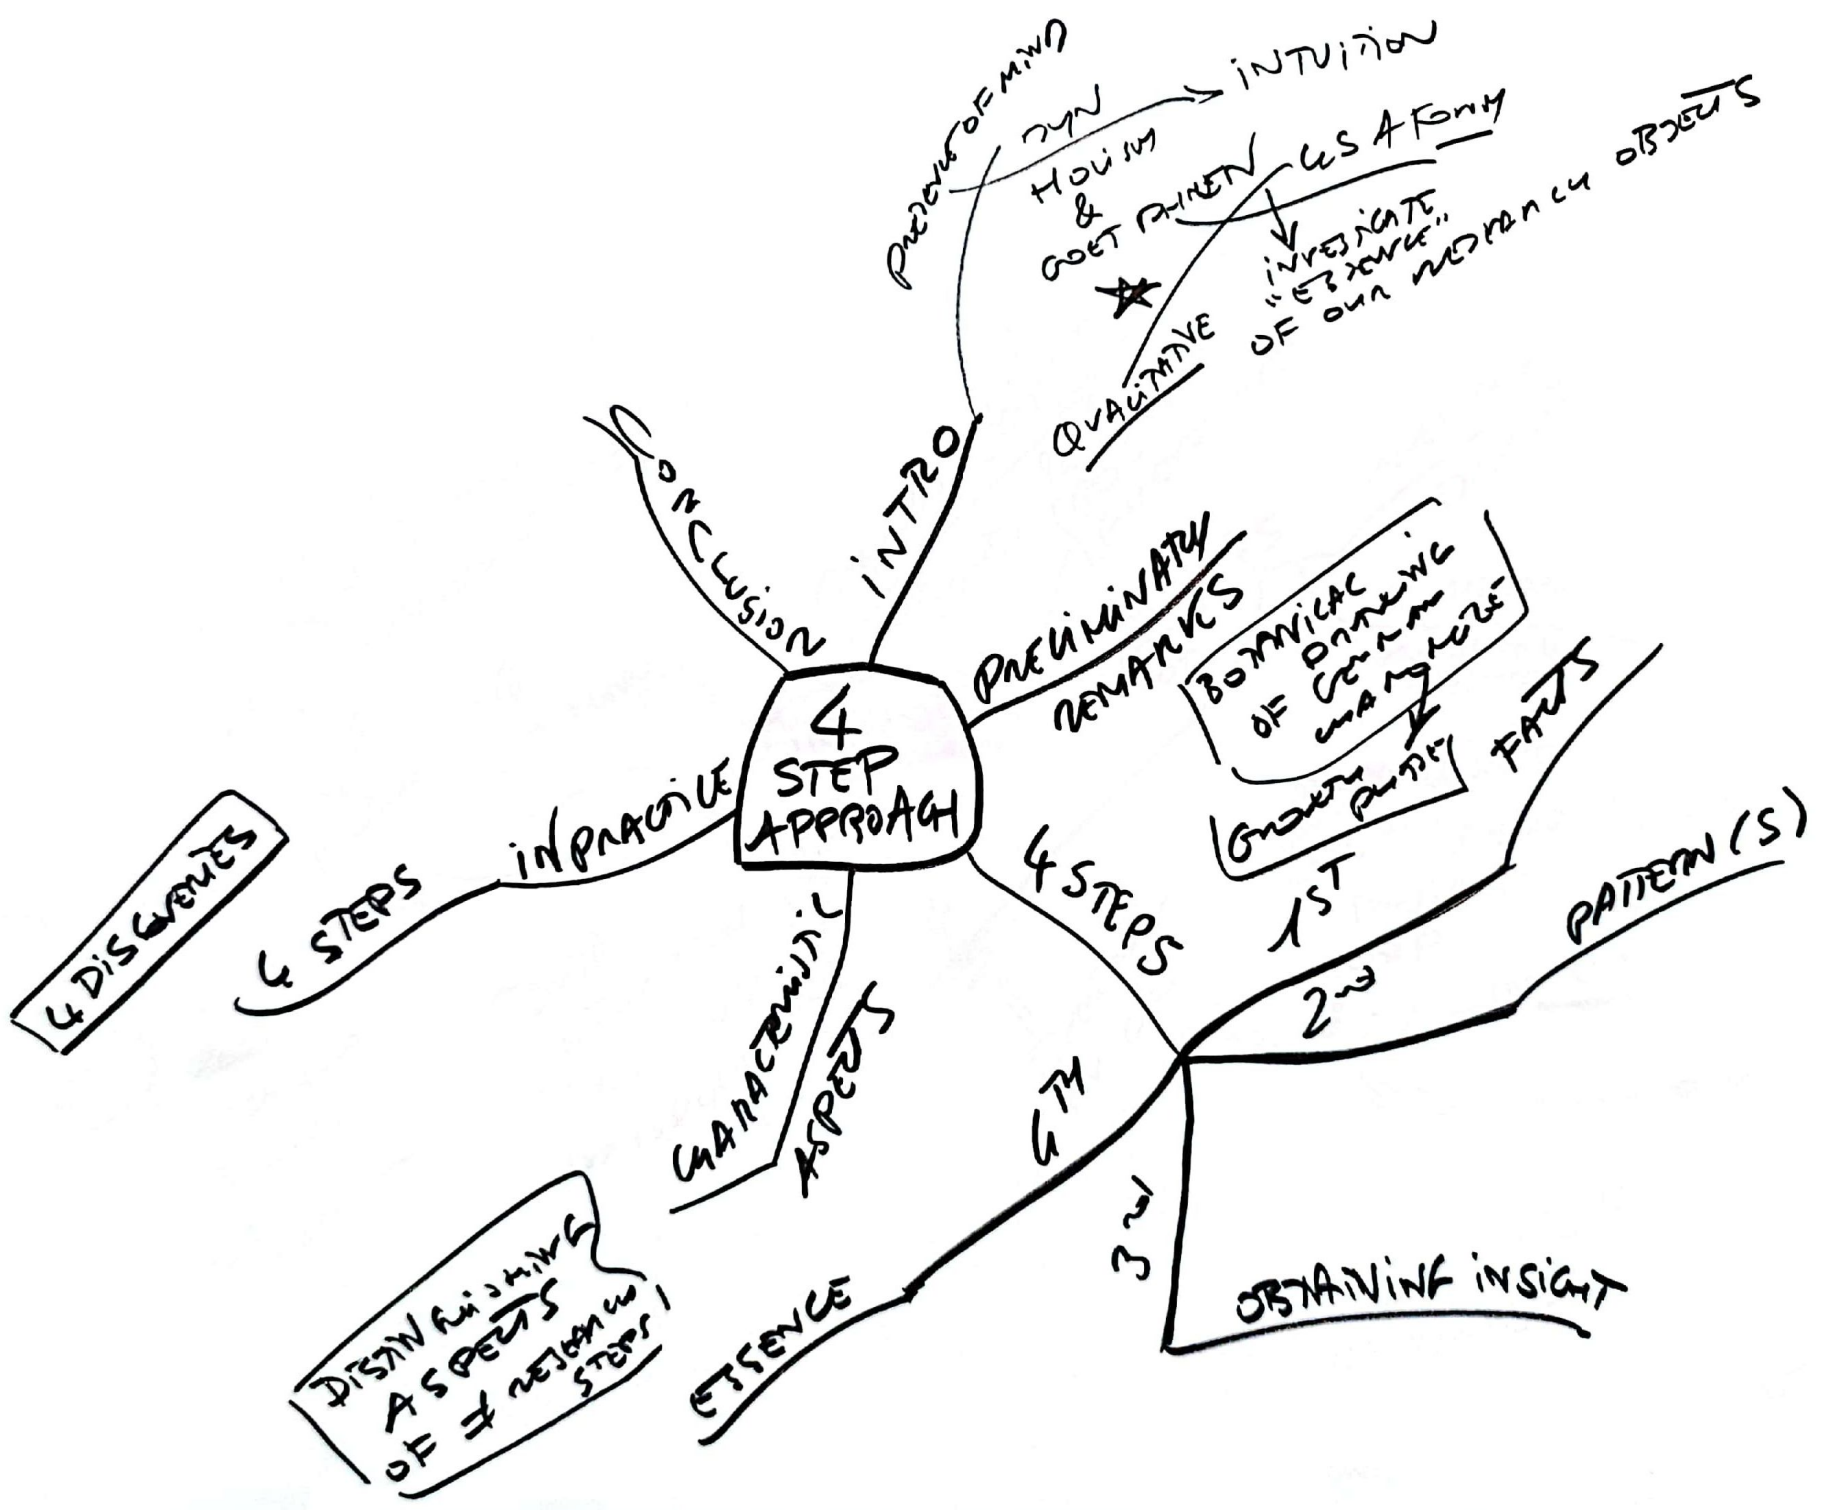 4
STEP
APPROACH
INTRO
PRESENCE OF MIND
DYN
HOLISM
&
GOET PHENEN
INTUITION
QUALITATIVE
4S A FORM
INVESTIGATE
"ESSENCE"
OF OUR RESEARCH OBJECTS
PRELIMINARY
REMARKS
BOTANICAL
DRAWING
OF GERMAN
CHAMOMILE
GROWTH
4 STEPS
1ST
FACTS
2ND
PATTERN(S)
3RD
OBTAINING INSIGHT
4TH
ESSENCE
CHARACTERISTIC
ASPECTS
DISTINGUISHING
ASPECTS
OF ≠ RESEARCH
STEPS
IN PRACTICE
4 STEPS
4 DISCOVERIES
CONCLUSION